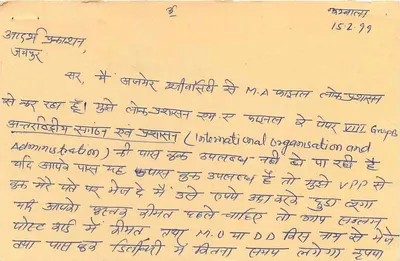 ॐ
कम्बाला
15.2.99
आदर्श प्रकाशन,
जयपुर
सर, मैं अजमेर यूनीवर्सिटी से M.A फाइनल लोक प्रशासन
से कर रहा हूँ। मुझे लोक प्रशासन एम.ए फाइनल के पेपर VIII Group B
अन्तर्राष्ट्रीय संगठन एवं प्रशासन (International organisation and
Administration) की पास बुक उपलब्ध नहीं हो पा रही है
यदि आपके पास यह पास बुक उपलब्ध है तो मुझे VPP से
बुक मेरे पते पर भेज दे मैं उसे रुपये अदा करके छुड़ा लूंगा
यदि आपको बुक की कीमत पहले चाहिए तो आप संलग्न
पोस्ट कार्ड में कीमत तथा M.O या DD किस नाम से भेजे
तथा पास बुक डिलीवरी में कितना समय लगेगा कृपया